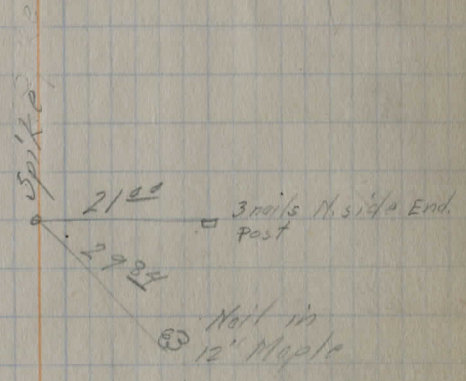 Spike
21 00
3 nails N. side End.
post
29 84
Nail in
12" Maple